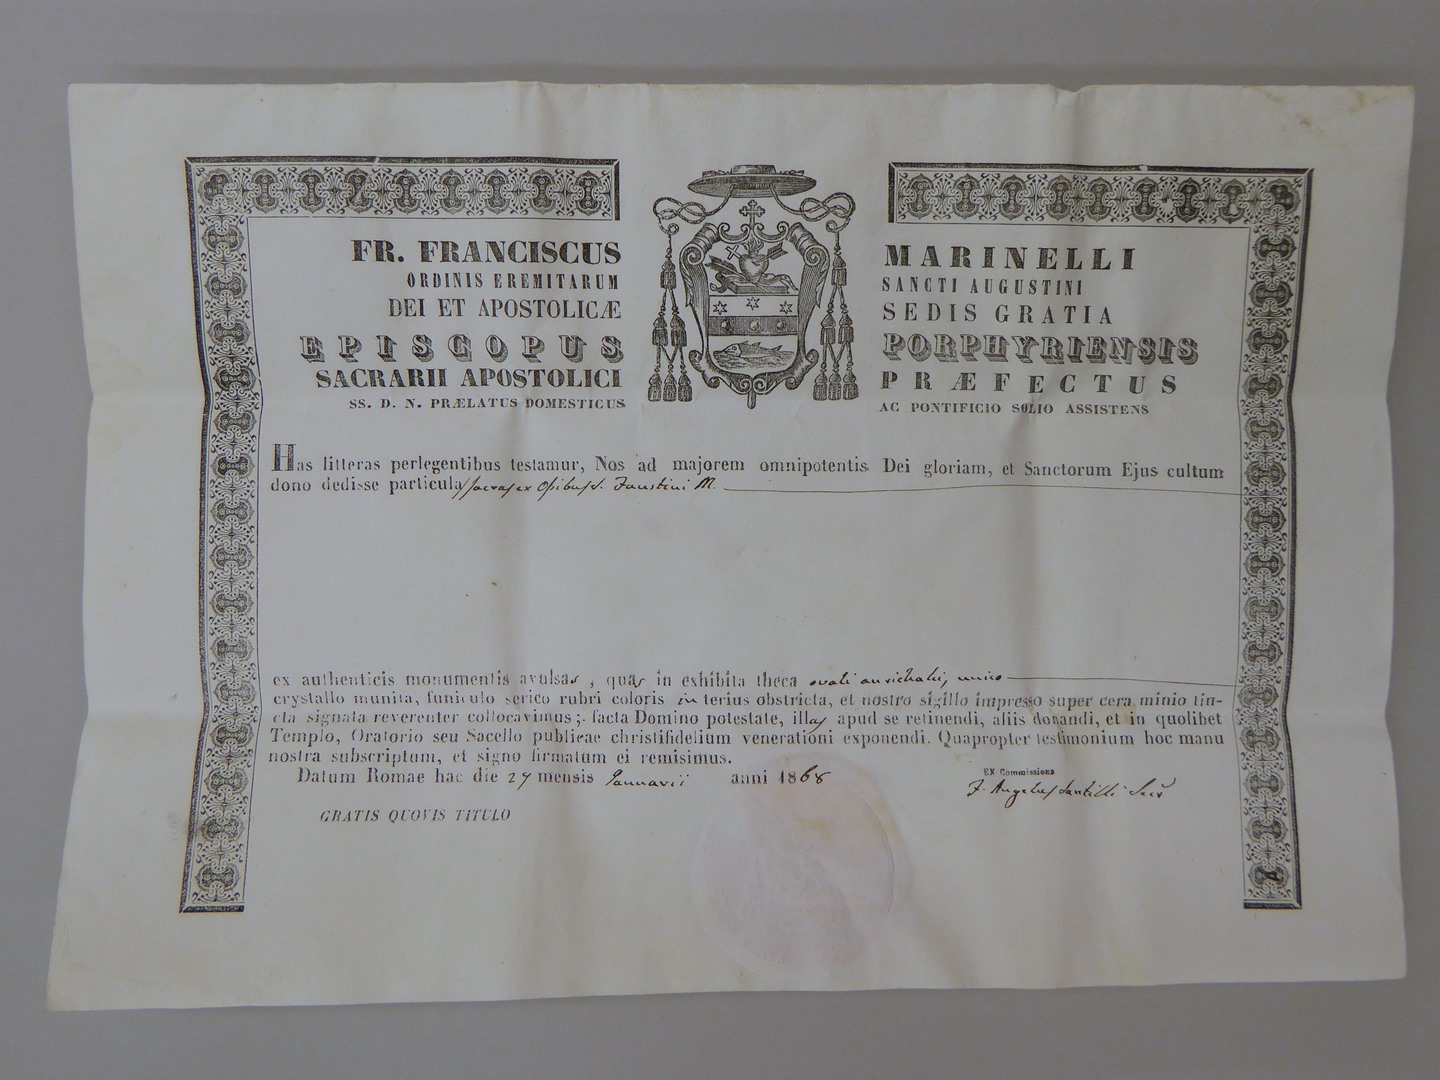 FR. FRANCISCUS MARINELLI
ORDINIS EREMITARUM SANCTI AUGUSTINI
DEI ET APOSTOLICÆ SEDIS GRATIA
EPISCOPUS PORPHYRIENSIS
SACRARII APOSTOLICI PRÆFECTUS
SS. D. N. PRÆLATUS DOMESTICUS AC PONTIFICIO SOLIO ASSISTENS
Has litteras perlegentibus testamur, Nos ad majorem omnipotentis Dei gloriam, et Sanctorum Ejus cultum
dono dedisse particulas sacras ex Ossibus S. Faustini M.
ex authenticis monumentis avulsas, quas in exhibita theca ovali aurichalci, unico
crystallo munita, funiculo serico rubri coloris in terius obstricta, et nostro sigillo impresso super cera minio tin-
cta signata reverenter collocavimus; facta Domino potestate, illas apud se retinendi, aliis donandi, et in quolibet
Templo, Oratorio seu Sacello publicae christifidelium venerationi exponendi. Quapropter testimonium hoc manu
nostra subscriptum, et signo firmatum ei remisimus.
Datum Romae hac die 27 mensis Januarii anni 1868
EX Commissione
F. Angelus Santilli Secr
GRATIS QUOVIS TITULO